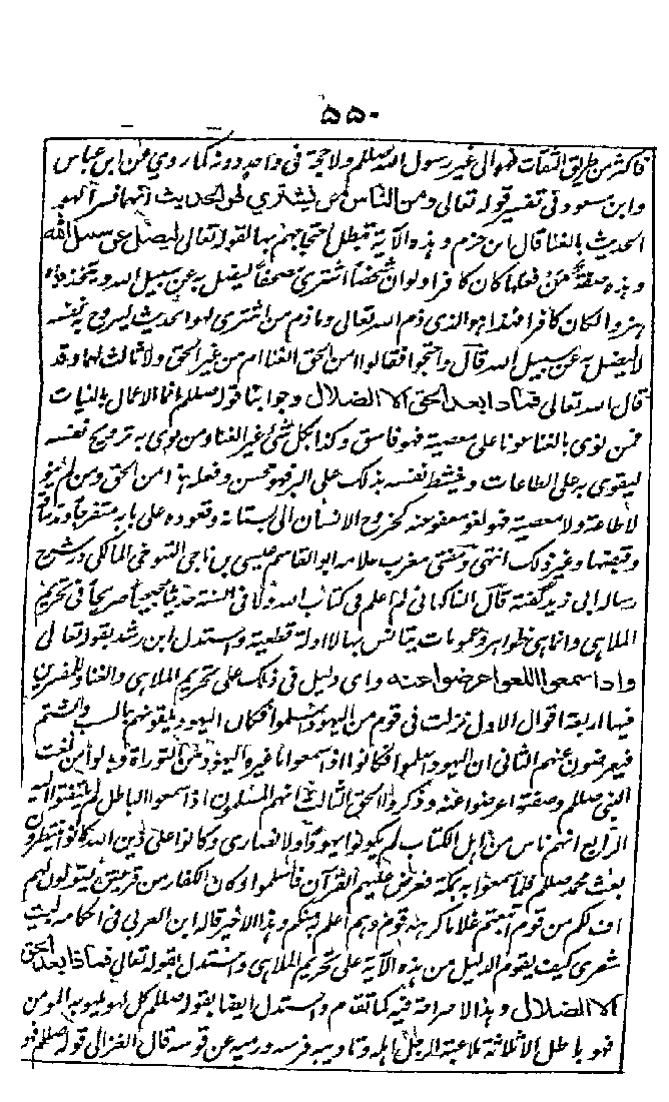 ۵۵۰
فاکثر من طریق الثقات فهو الی غیر رسول الله صلعم ولا حجة فی واحد دونه کما روی عن ابن عباس
وابن مسعود فی تفسیر قوله تعالی ومن الناس من یشتری لهو الحدیث انهما فسرا لهو
الحدیث بالغنا قال ابن حزم وهذه الآیة تبطل احتجاجهم بها لقوله تعالی لیضل عن سبیل الله
وهذه صفة من فعلها کان کافرا ولو ان شخصاً اشتری مصحفاً لیضل به عن سبیل الله ویتخذها
هزوا لکان کافرا فهذا هو الذی ذم الله تعالی وما ذم من اشتری لهو الحدیث لیروح به نفسه
لا لیضل به عن سبیل الله قال واحتجوا فقالوا امن الحق الغنا ام من غیر الحق ولا ثالث لهما وقد
قال الله تعالی فماذا بعد الحق الا الضلال وجوابنا قوله صلعم انما الاعمال بالنیات
فمن نوی بالغنا عونا علی معصیة فهو فاسق وکذا بکل شئ غیر الغنا ومن نوی به ترویح نفسه
لیقوی به علی الطاعات وینشط نفسه بذلک علی البر فهو محسن وفعله هذا من الحق ومن لم ینو
لا طاعة ولا معصیة فهو لغو معفو عنه کخروج الانسان الی بستانه وقعوده علی بابه متفرجاً
وغیر ذلک انتهی ومفتی مغرب علامه ابو القاسم عیسی بن ناجی التنوخی المالکی در شرح
رساله ابی زید گفته قال الفاکهانی لم اعلم فی کتاب الله ولا فی السنة حدیثاً صحیحاً صریحاً فی تحریم
الملاهی وانما هی ظواهر وعمومات یتانس بها لا ادلة قطعیة واستدل ابن رشد بقوله تعالی
واذا سمعوا اللغو اعرضوا عنه وای دلیل فی ذلک علی تحریم الملاهی والغنا وللمفسرین
فیها اربعة اقوال الاول نزلت فی قوم من الیهود اسلموا فکان الیهود یلقونهم بالسب والشتم
فیعرضون عنهم الثانی ان الیهود اسلموا فکانوا اذا سمعوا ما غیره الیهود من التوراة وبدلوا من نعت
النبی صلعم وصفته اعرضوا عنه وذکروا الحق الثالث انهم المسلمون اذا سمعوا الباطل لم یلتفتوا الیه
الرابع انهم ناس من اهل الکتاب لم یکونوا یهوداً ولا نصاری وکانوا علی دین الله کانوا ینتظرون
بعث محمد صلعم فلما سمعوا به بمکة فعرض علیهم القرآن فاسلموا وکان الکفار من قریش یقولون لهم
اف لکم من قوم اتبعتم غلاما کرهه قومه وهم اعلم به منکم وهذا الاخیر قاله ابن العربی فی احکامه لیت
شعری کیف یقوم الدلیل من هذه الآیة علی تحریم الملاهی واستدل بقوله تعالی فماذا بعد الحق
الا الضلال وهذا لا صراحة فیه کما تقدم واستدل ایضا بقوله صلعم کل لهو یلهو به المومن
فهو باطل الا ثلاثة ملاعبة الرجل اهله وتادیبه فرسه ورمیه عن قوسه قال الغزالی قوله صلعم فهو